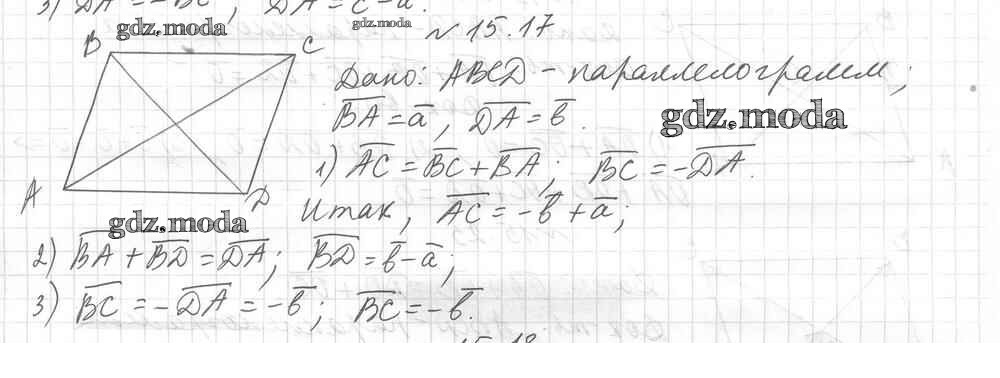 3) DA = -BC ; DA = c - a.
gdz.moda
gdz.moda
№15.17
B
C
Дано: ABCD - параллелограмм;
BA = a, DA = b.
gdz.moda
1) AC = BC + BA; BC = -DA.
A
D
Итак, AC = -b + a;
gdz.moda
2) BA + BD = DA; BD = b - a;
3) BC = -DA = -b; BC = -b.